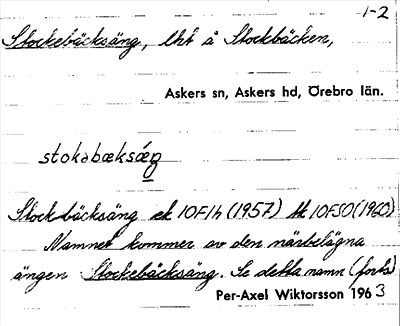 1-2
Stockebäcksäng, lht å Stockbäcken,
Askers sn, Askers hd, Örebro län.
stokabæksæŋ
Stockbäcksäng ek 10F1h (1957) tk 10FSO (1960)
Namnet kommer av den närbelägna
ängen Stockebäcksäng. Se detta namn (forts)
Per-Axel Wiktorsson 1963